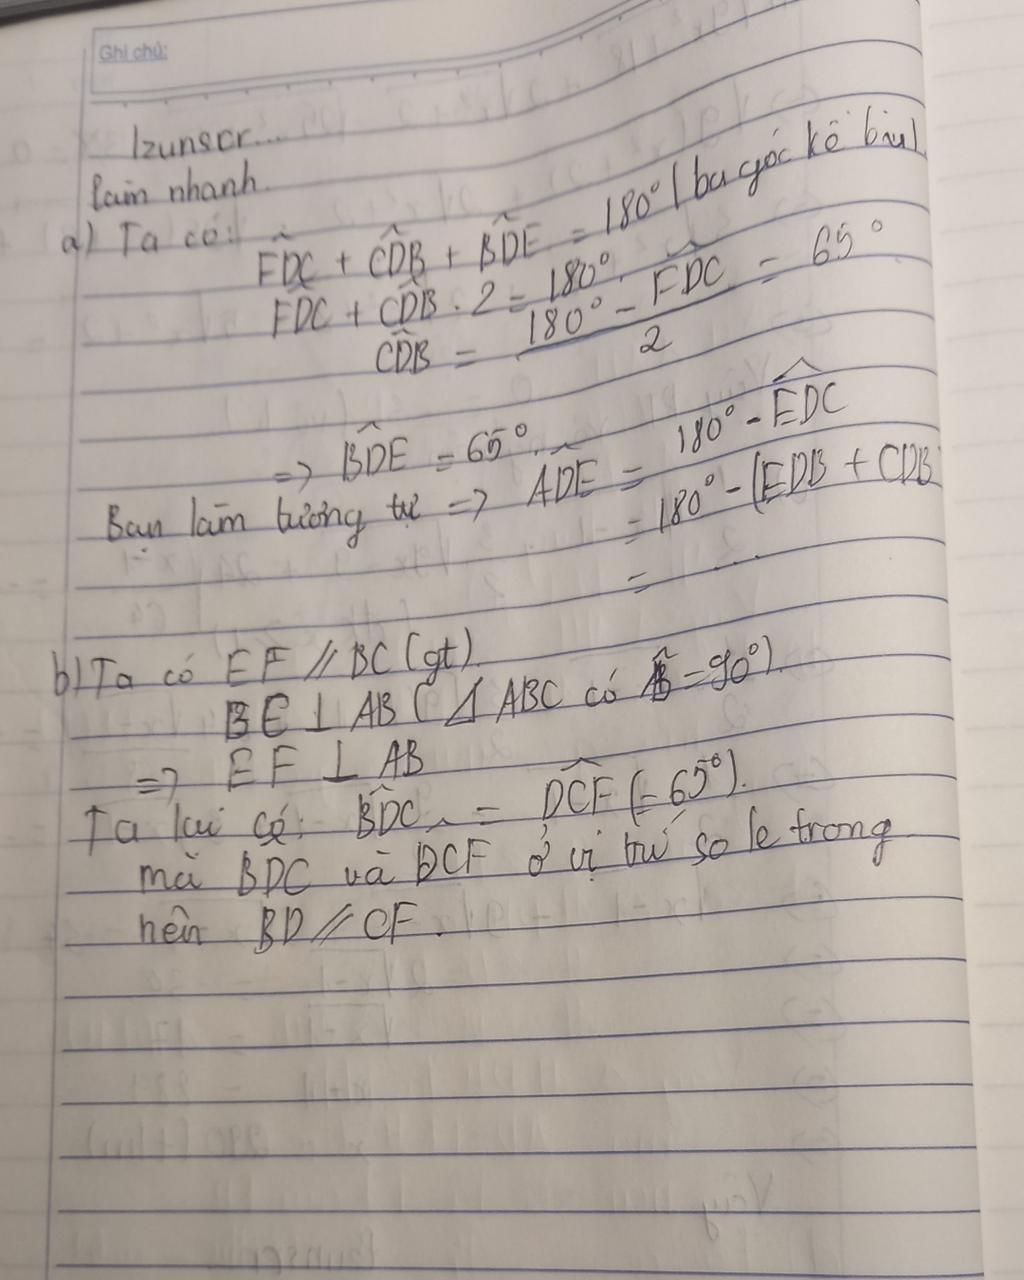 Ghi chú:
Izunscr...
làm nhanh.
a) Ta có:
FDC + CDB + BDE = 180° (ba góc kề bù)
FDC + CDB . 2 = 180°.
CDB = (180° - FDC) / 2 = 65°
=> BDE = 65°.
Bạn làm tương tự => ADE = 180° - EDC
= 180° - (EDB + CDB
= .
b) Ta có EF // BC (gt).
BC ⊥ AB (Δ ABC có B = 90°).
=> EF ⊥ AB
Ta lại có: BDC = DCF (= 65°).
mà BDC và DCF ở vị trí so le trong
nên BD // CF.